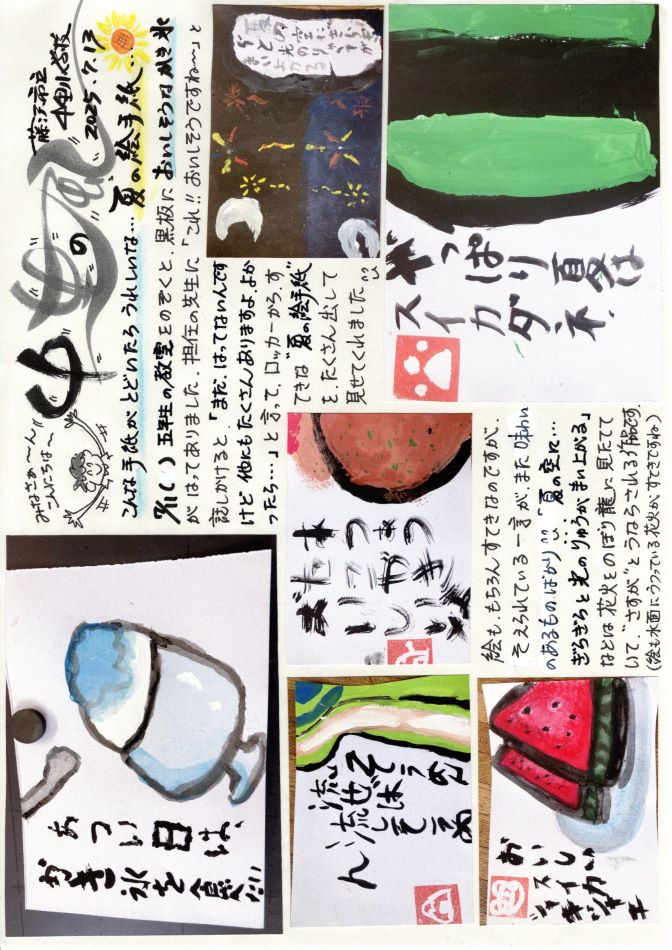 中の風
藤沢市立
中里小学校
2025.7.13
みなさぁ〜ん
こんにちは〜
こんな手紙がとどいたらうれしいな…夏の絵手紙…
7/11( )五年生の教室をのぞくと、黒板においしそうなかき氷
がはってありました。担任の先生に「これ!!おいしそうですね〜」と
話しかけると「まだ、はってないんです
けど他にもたくさんありますよ。よか
ったら…」と言って、ロッカーから、す
てきな"夏の絵手紙"
を、たくさん出して
見せてくれました。
絵も、もちろんすてきなのですが、
そえられている一言が、また味わい
のあるものばかり。「夏の空に…
ぎらぎらと光のりゅうがまい上がる」
などは花火をのぼり龍に見たてて
いて、"さすが"とうならされる作品です。
(絵も水面にうつっている花火が、すてきですね)
夏の空に
ぎらぎらと
光のりゅうが
まい上がる
やっぱり夏は
スイカダネ
あつい日は、
かき氷を食べ
流せば
流しそうめん
おいしい
スイカ